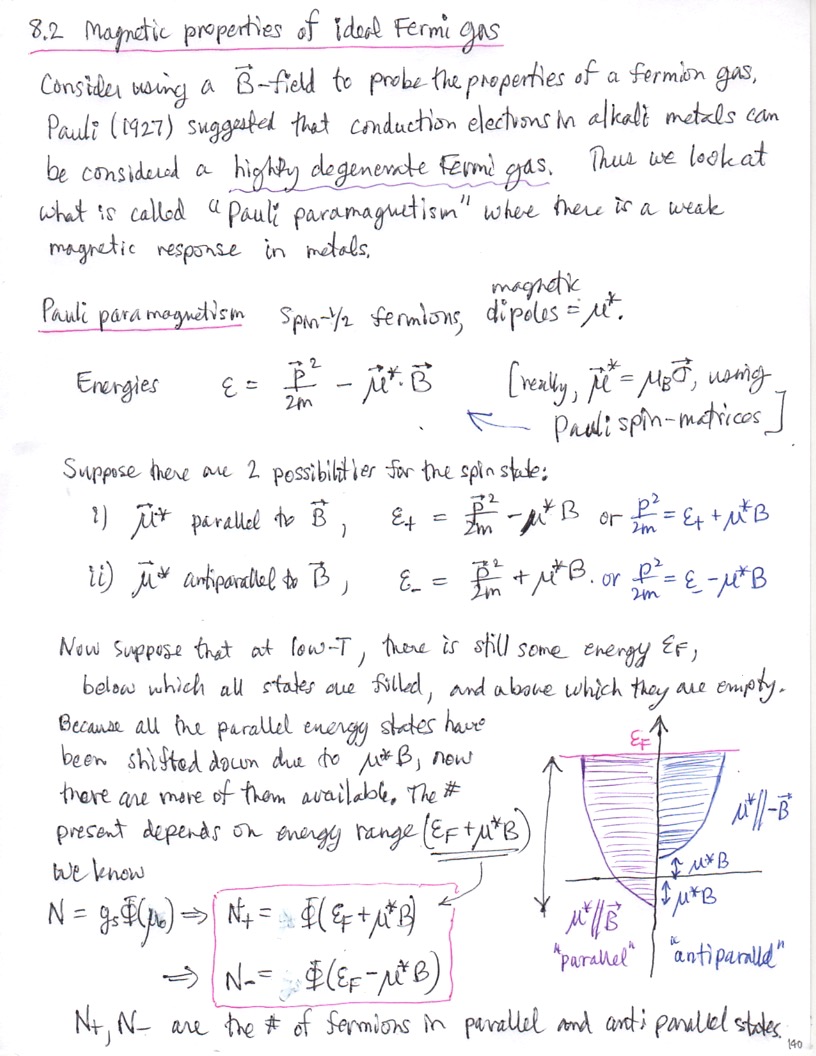 8.2 Magnetic properties of ideal Fermi gas
Consider using a B⃗-field to probe the properties of a fermion gas.
Pauli (1927) suggested that conduction electrons in alkali metals can
be considered a highly degenerate Fermi gas. Thus we look at
what is called "Pauli paramagnetism" where there is a weak
magnetic response in metals.
magnetic
Pauli paramagnetism spin-1/2 fermions, dipoles = μ*.
Energies ε = p⃗²/2m − μ⃗*·B⃗ [really, μ⃗* = μ_B σ⃗, using
Pauli spin-matrices]
Suppose there are 2 possibilities for the spin state:
i) μ⃗* parallel to B⃗, ε₊ = p⃗²/2m − μ*B or p²/2m = ε₊ + μ*B
ii) μ⃗* antiparallel to B⃗, ε₋ = p⃗²/2m + μ*B. or p²/2m = ε₋ − μ*B
Now suppose that at low-T, there is still some energy ε_F,
below which all states are filled, and above which they are empty.
Because all the parallel energy states have
been shifted down due to μ*B, now
there are more of them available. The #
present depends on energy range (ε_F + μ*B)
We know
N = g_s Φ(μ₀) ⇒ N₊ = Φ(ε_F + μ*B)
⇒ N₋ = Φ(ε_F − μ*B)
ε_F
μ*//−B⃗
μ*B
μ*B
μ*//B⃗
"parallel" "antiparallel"
N₊, N₋ are the # of fermions in parallel and anti parallel states.
140